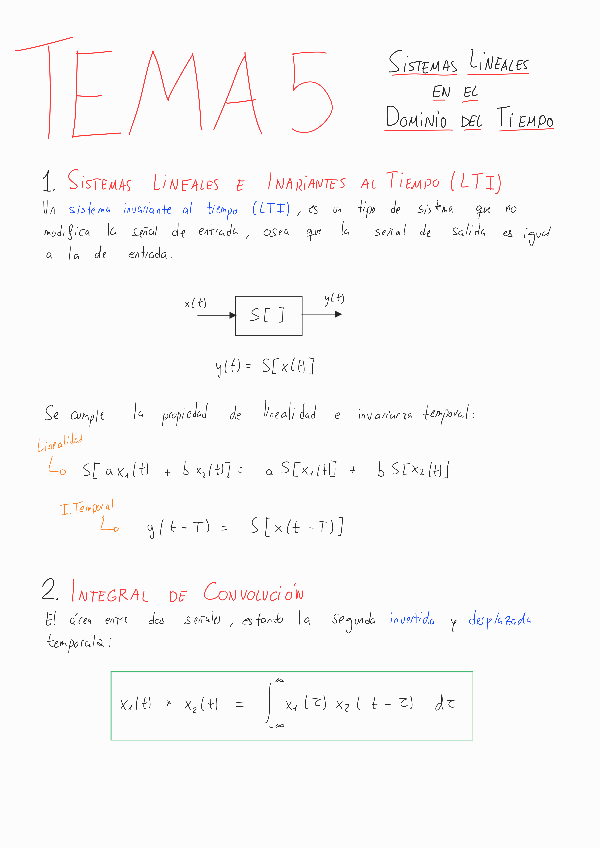 TEMA 5
SISTEMAS LINEALES
EN EL
DOMINIO DEL TIEMPO
1. SISTEMAS LINEALES E INARIANTES AL TIEMPO (LTI)
Un sistema invariante al tiempo (LTI), es un tipo de sistema que no
modifica la señal de entrada, osea que la señal de salida es igual
a la de entrada.
x(t)
S[ ]
y(t)
y(t) = S[x(t)]
Se cumple la propiedad de linealidad e invarianza temporal:
Linealidad
S[a x₁(t) + b x₂(t)] = a S[x₁(t)] + b S[x₂(t)]
I. Temporal
y(t - T) = S[x(t - T)]
2. INTEGRAL DE CONVOLUCIÓN
El área entre dos señales, estando la segunda invertida y desplazada
temporal:
x₁(t) * x₂(t) = ∫_{-∞}^{∞} x₁(τ) x₂(t - τ) dτ